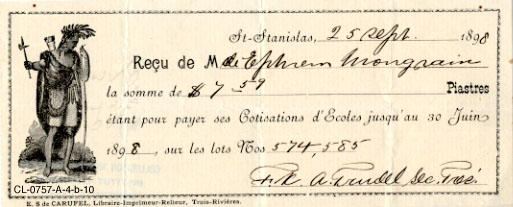 St-Stanislas, 25 Sept. 1898
Reçu de M. Ephrem Mongrain
la somme de $7 59 Piastres
étant pour payer ses Cotisations d'Ecoles jusqu'au 30 Juin
1898, sur les lots Nos 574, 585
A. Trudel Sec. Trés.
CL-0757-A-4-b-10
E. S de CARUFEL, Libraire-Imprimeur-Relieur, Trois-Rivières.